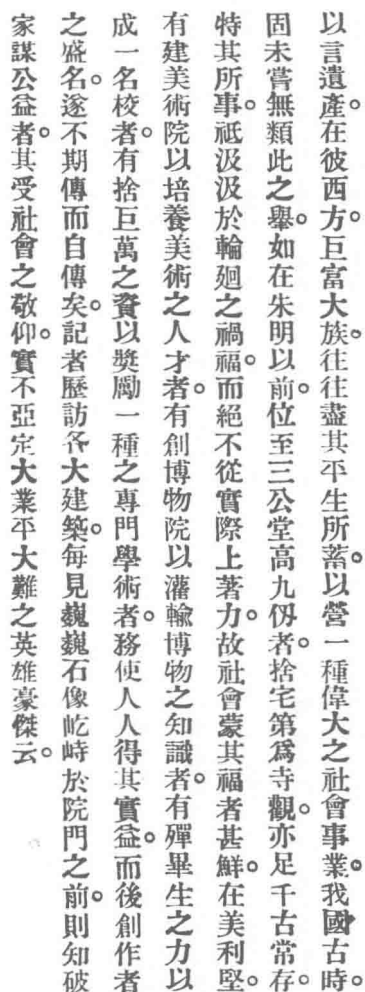 以言遺產。在彼西方。巨富大族。往往盡其平生所蓄。以營一種偉大之社會事業。我國古時。
固未嘗無類此之舉。如在朱明以前。位至三公堂高九仭者。捨宅第爲寺觀。亦足千古常存。
特其所事。祗汲汲於輪廻之禍福。而絕不從實際上著力。故社會蒙其福者甚鮮。在美利堅。
有建美術院以培養美術之人才者。有創博物院以灌輸博物之知識者。有殫畢生之力以
成一名校者。有捨巨萬之資以獎勵一種之專門學術者。務使人人得其實益。而後創作者
之盛名。遂不期傳而自傳矣。記者歷訪各大建築。每見巍巍石像屹峙於院門之前。則知破
家謀公益者。其受社會之敬仰。實不亞定大業平大難之英雄豪傑云。